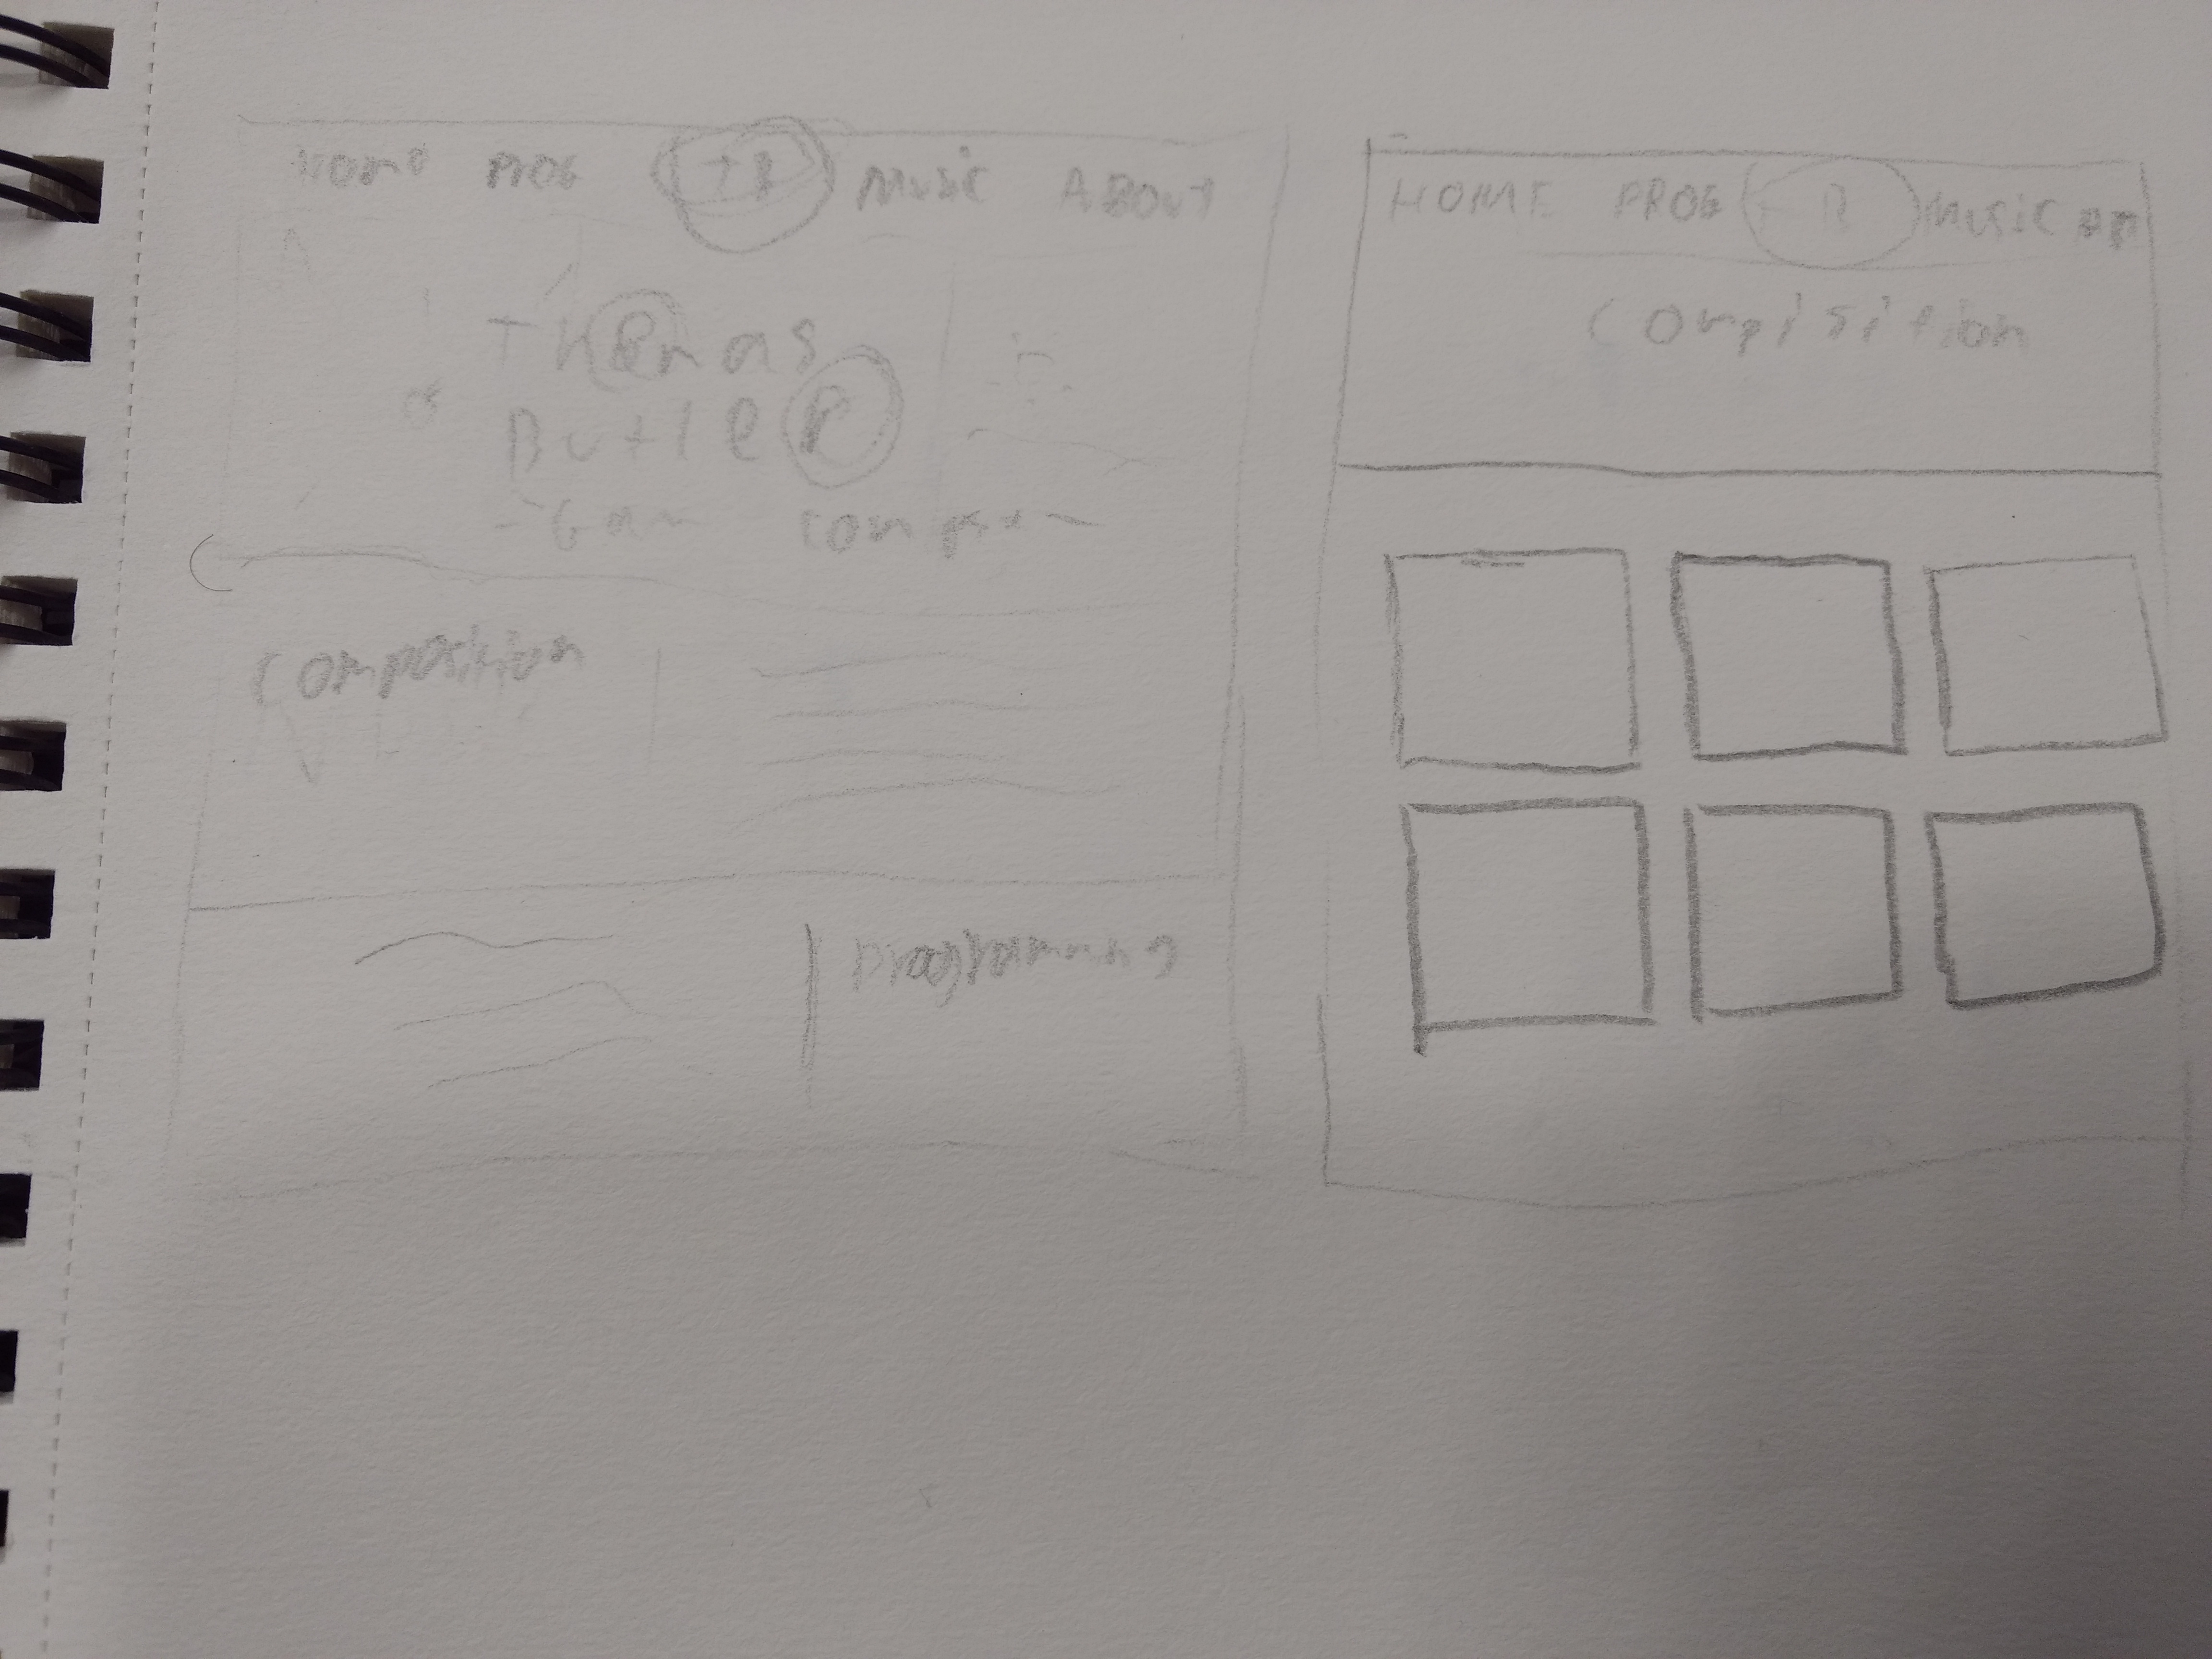 Home PROG TB Music ABOUT
Thomas
ButleR
Composition
Programming
HOME PROG B Music
Compisition